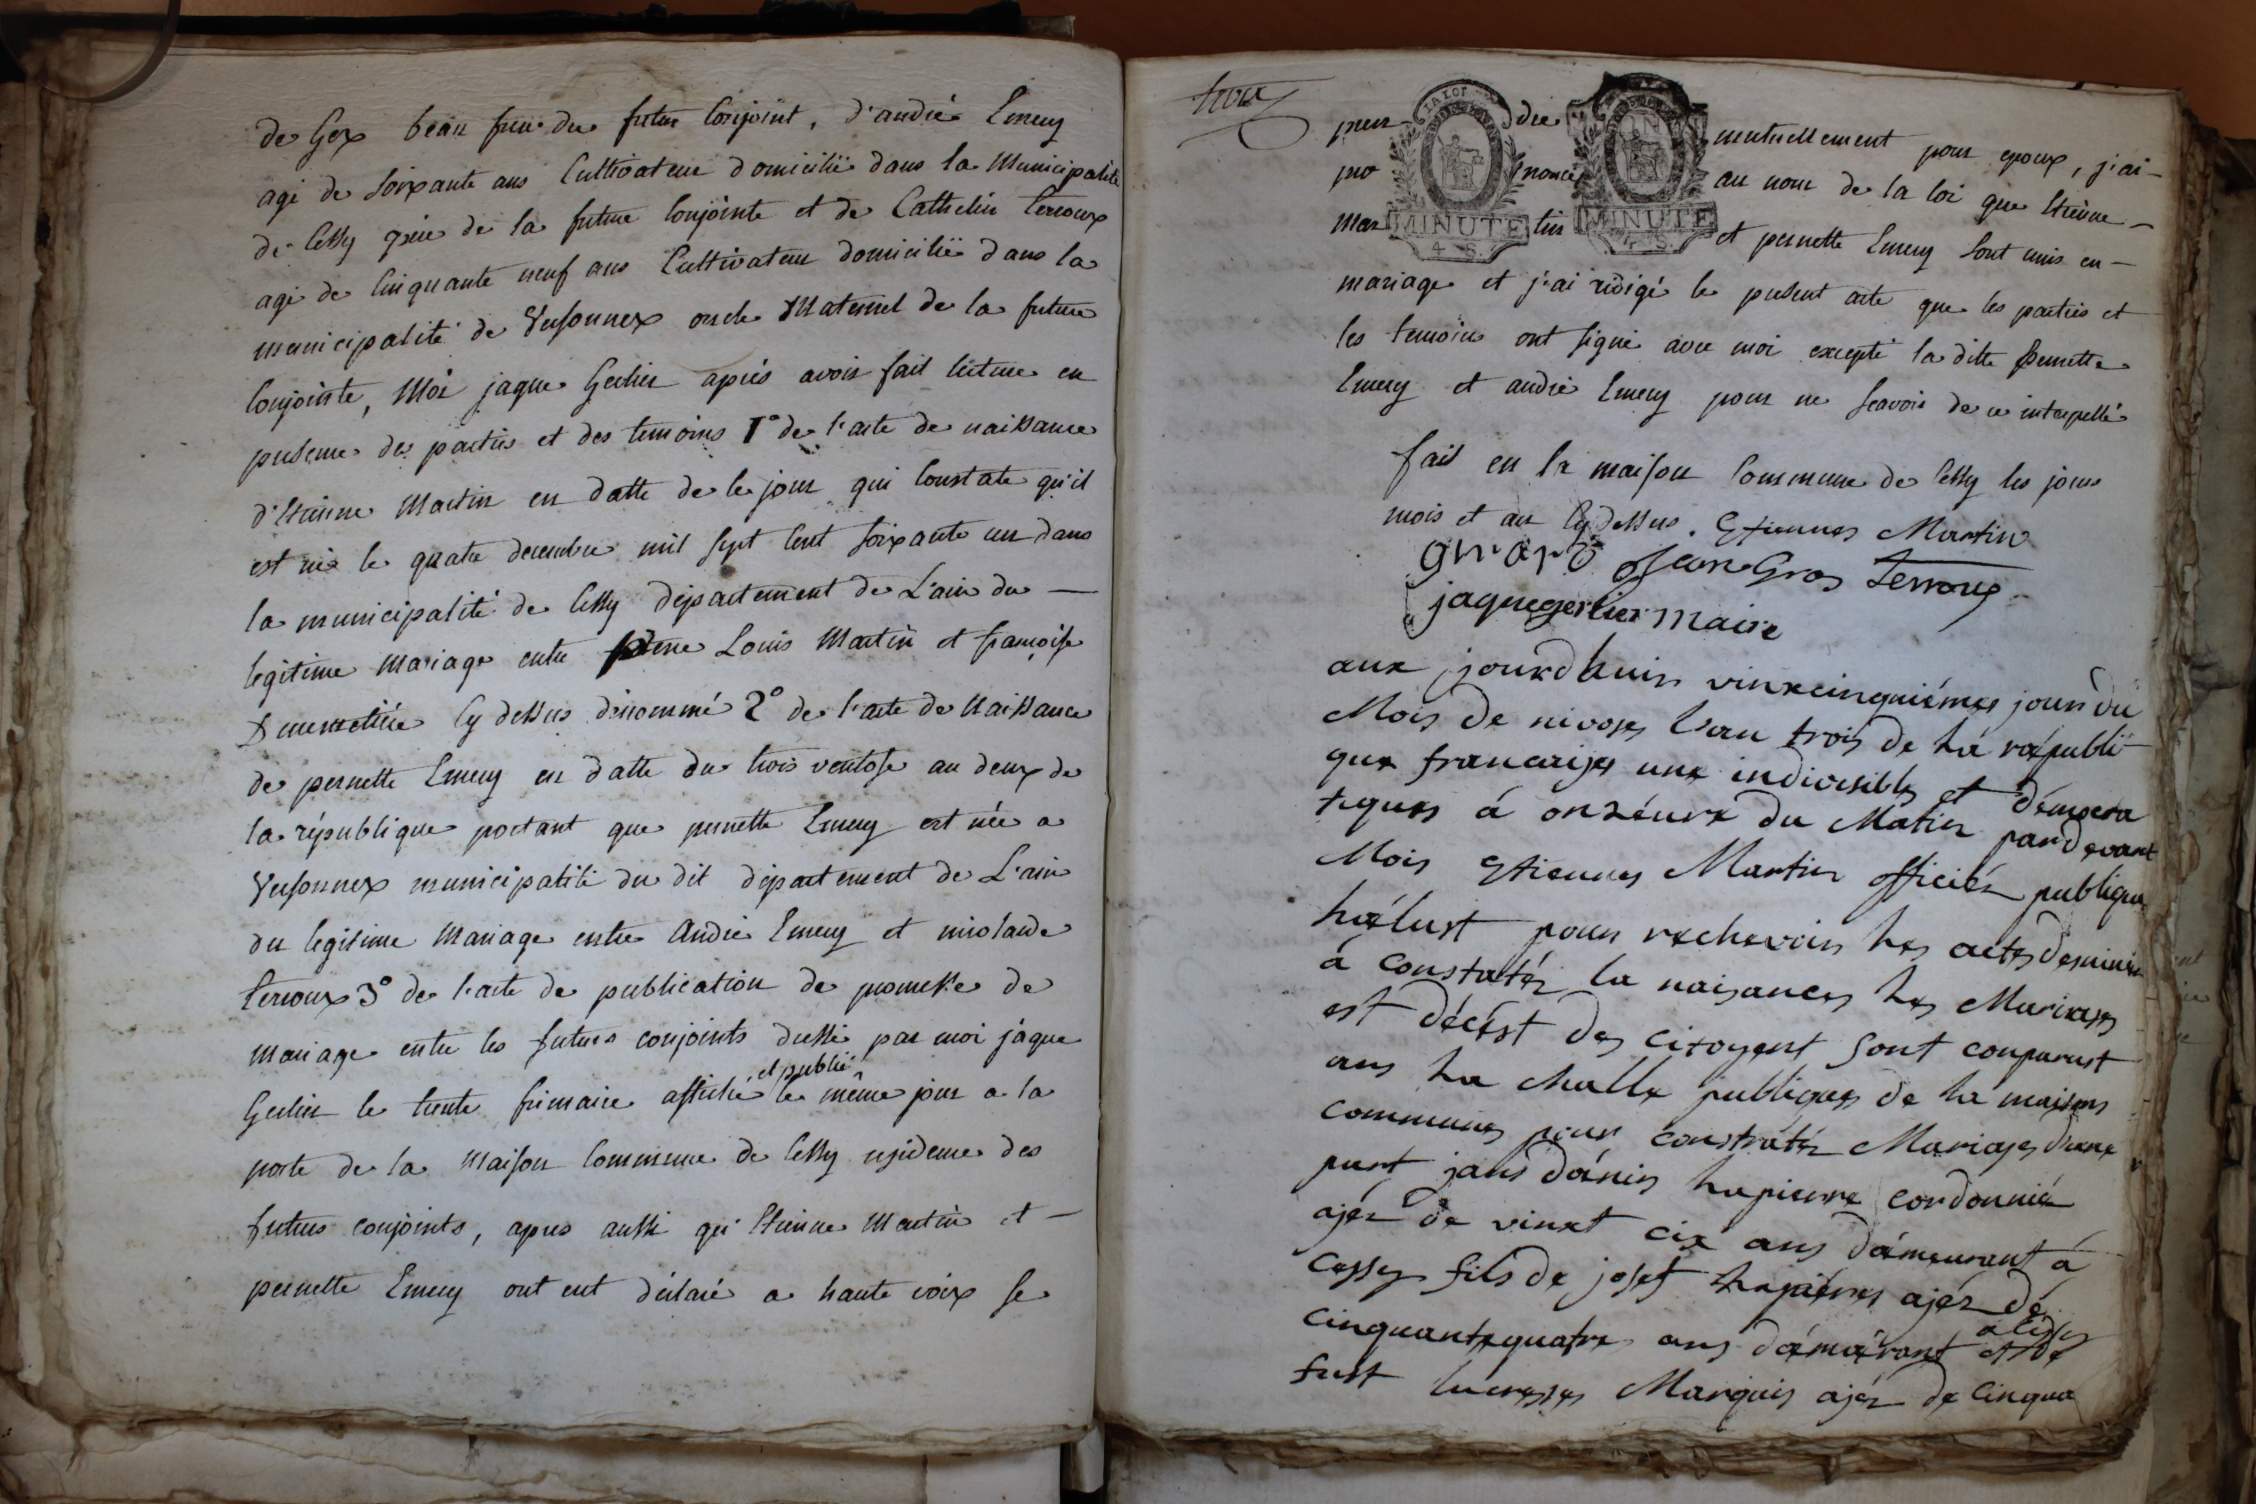 de Gex beau frere du futur Conjoint, d'andré Emery
agé de Soixante ans Cultivateur domicilié dans la Municipalité
de Cessy père de la future Conjointe et de Cathelin Terroux
agé de Cinquante neuf ans Cultivateur domicilié dans la
municipalité de Versonnex oncle Maternel de la future
Conjointe, Moi jaque Gerlier après avoir fait lecture en
presence des parties et des temoins 1° de l'acte de naissance
d'Etienne Martin en datte de ce jour qui Constate qu'il
est né le quatre decembre mil sept Cent Soixante un dans
la municipalité de Cessy département de L'ain du —
legitime mariage entre Louis Martin et françoise
Cy dessus dénommé 2° de l'acte de Naissance
de pernette Emery en datte du trois ventose an deux de
la république portant que pernette Emery est née a
Versonnex municipalité du dit département de L'ain
du legitime Mariage entre André Emery et nicolarde
Terroux 3° de l'acte de publication de promesse de
mariage entre les futurs conjoints dressé par moi jaque
Gerlier le trente frimaire affiché et publié le même jour a la
porte de la Maison Commune de Cessy residence des
futurs conjoints, apres aussi qu' Etienne Martin et —
pernette Emery ont eut déclaré a haute voix se
pren dre mutuellement pour epoux, j'ai —
pro noncé au nom de la loi que Etienne —
Mar tin et pernette Emery Sont unis en —
LA LOI
MINUTE
4 S.
MINUTE
4 S.
mariage et j'ai rédigé le present acte que les parties et
les temoins ont signé avec moi excepté la ditte Pernette
Emery et andré Emery pour ne scavoir de ce interpellé
fait en la maison Commune de Cessy les jour
mois et an Cy dessus. Etiennes Martin
Jean Gros Terroux
jaque gerlier Maire
aux jourdhuis vinxcinquiémes jour du
Mois de nivoses l'an trois de la rapubli
que francaises une indivisibles et démocra
tiques á onzéure du Matin pardevant
Mois Etiennes Martin officiér publique
hélust pour rechevoir les actes desminés
á constatér la naisances les Mariages
est décést des citoyent sont comparust
ans la challe publiques de la maisons
communes pour constratér Mariajes dune
part jans dánis lapierre cordonnié
ajér de vinxt cix ans démeurant á
Cessy fils de josef lapiérres ajér dé
cinquantequatre ans démárant a Cessy et de
fust lucresses Marquis ajér de Cinqua